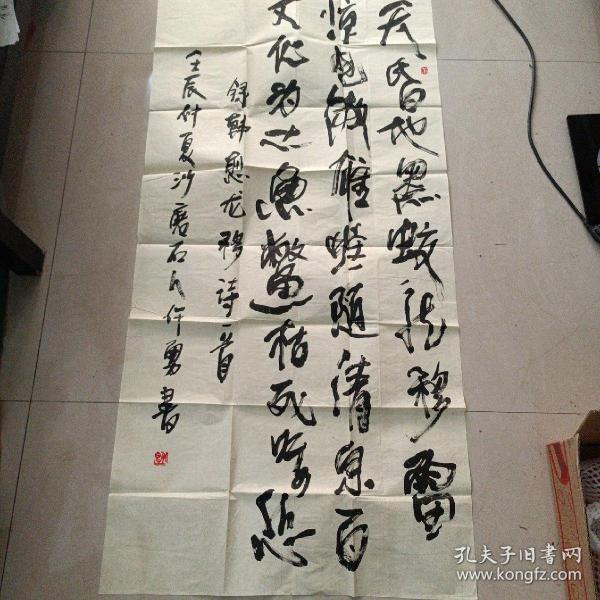 天昏地黑蛟龙移雷
惊电激雄雌随清泉百
丈化为土鱼鳖枯死吁可悲
録韩愈龙移诗一首
壬辰仲夏沙磨石人仵勇書
孔夫子旧书网
www.kongfz.com